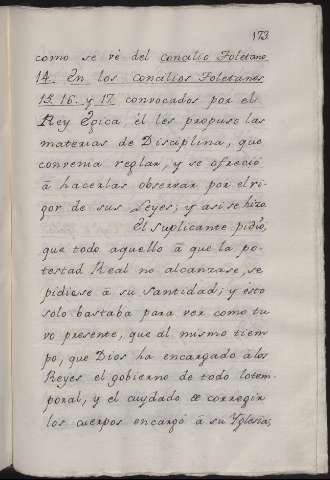 173.
como se vè del Concilio Toletano
14. En los Concilios Toletanos
15. 16. y 17. convocados por el
Rey Egica èl les propuso las
materias de Disciplina, que
convenia reglar, y se ofreciò
à hacerlas observar por el ri-
gor de sus Leyes; y asi se hizo
El suplicante pidio,
que todo aquello à que la po-
testad Real no alcanzase, se
pidiese à su Santidad; y ésto
solo bastaba para ver como tu-
vo presente, que al mismo tiem-
po, que Dios ha encargado à los
Reyes el gobierno de todo lo tem-
poral, y el cuydado de corregir
los cuerpos encargó à su Yglesia,